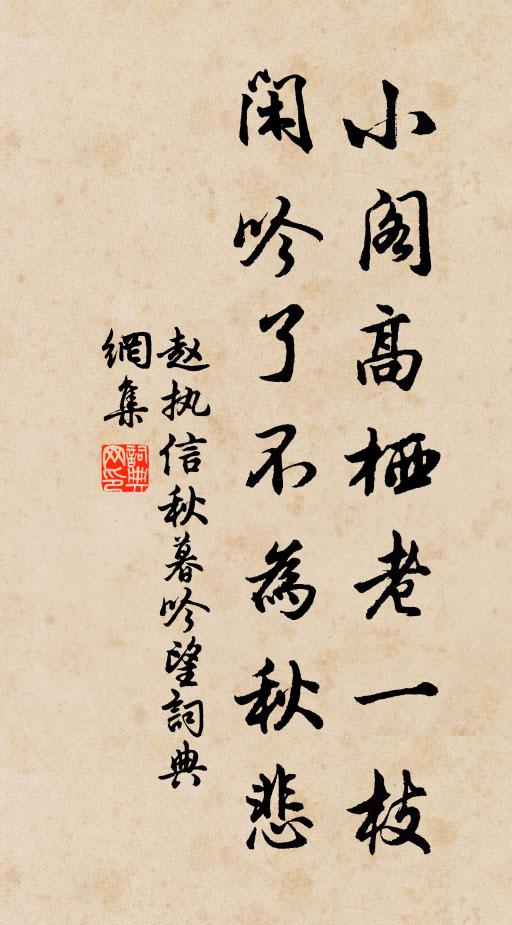 小阁高栖老一枝
闲吟了不為秋悲
赵执信秋暮吟望詞典
網集
詞典网印